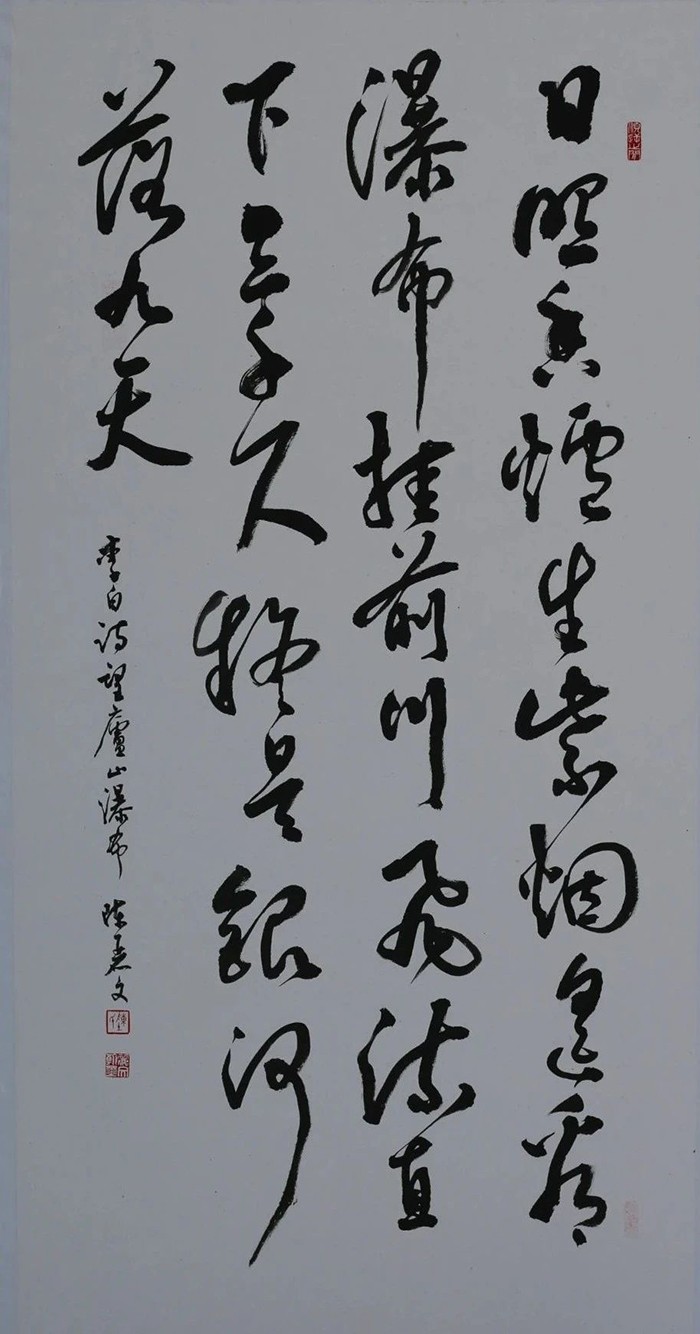 日照香爐生紫烟遥看
瀑布挂前川飛流直
下三千尺疑是銀河
落九天
李白詩望廬山瀑布 陳文